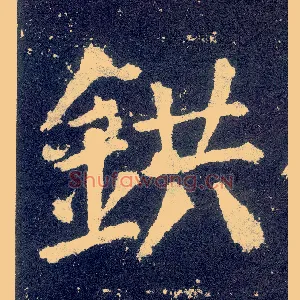 鉷
Shufawang.CN